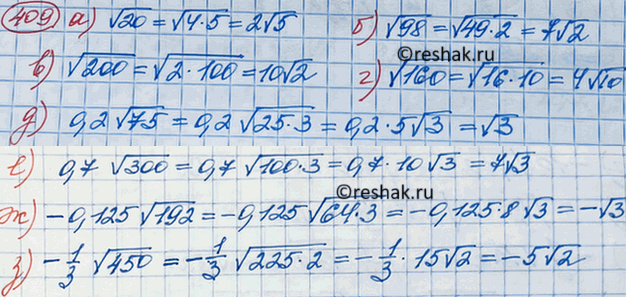 409 а) √20 = √4·5 = 2√5 б) √98 = √49·2 = 7√2
©reshak.ru
в) √200 = √2·100 = 10√2 г) √160 = √16·10 = 4√10
д) 0,2√75 = 0,2√25·3 = 0,2·5√3 = √3
е) 0,7√300 = 0,7√100·3 = 0,7·10√3 = 7√3
©reshak.ru
ж) -0,125√192 = -0,125√64·3 = -0,125·8√3 = -√3
з) -1/3 √450 = -1/3 √225·2 = -1/3 · 15√2 = -5√2